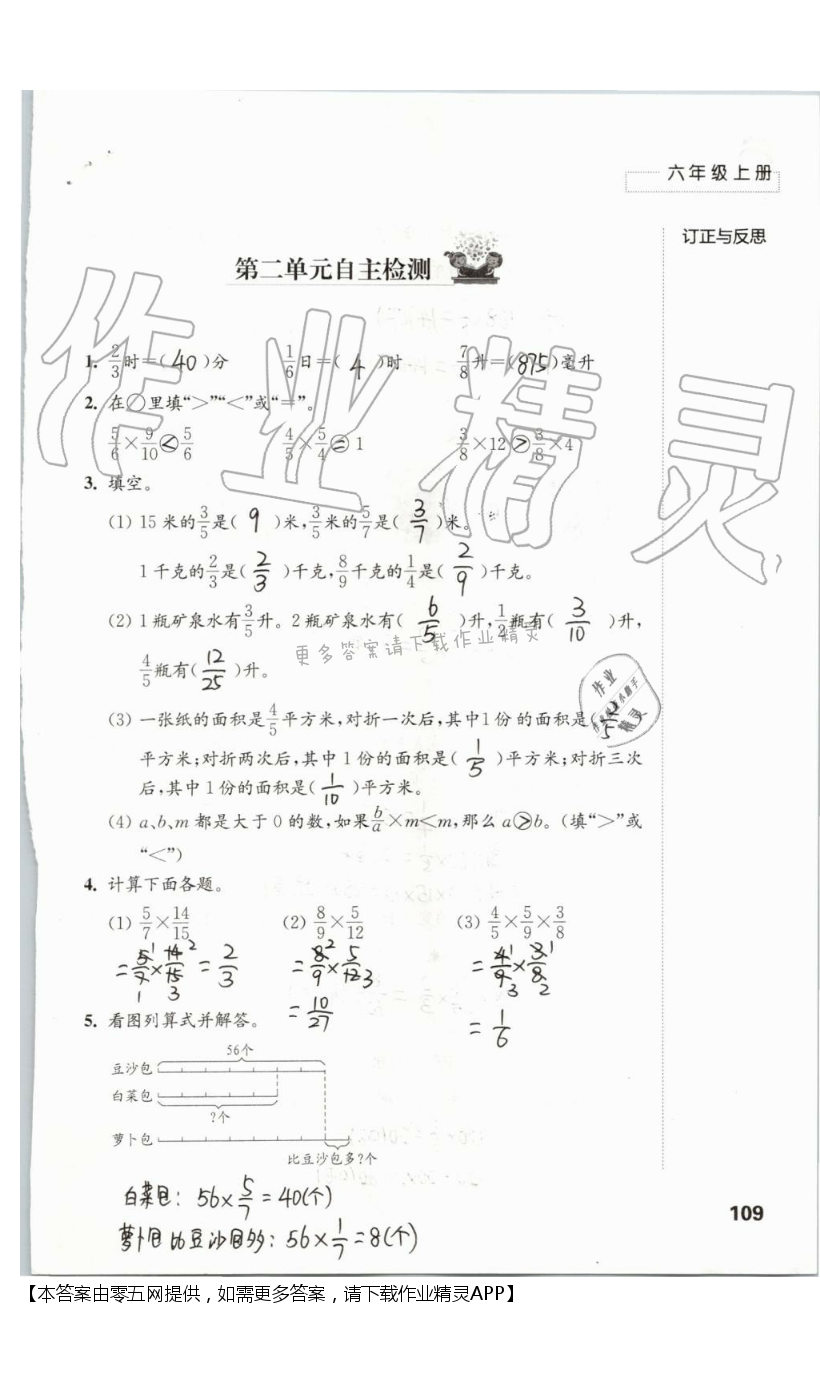 六年级上册
订正与反思
第二单元自主检测
1. 2/3时=(40)分 1/6日=(4)时 7/8升=(875)毫升
2. 在○里填“>”“<”或“=”。
5/6×9/10<5/6 4/5×5/4=1 3/8×12>3/8×4
3. 填空。
(1) 15米的3/5是(9)米,3/5米的5/7是(3/7)米。
1千克的2/3是(2/3)千克,8/9千克的1/4是(2/9)千克。
(2) 1瓶矿泉水有3/5升。2瓶矿泉水有(6/5)升,1/2瓶有(3/10)升,
更多答案请下载作业精灵
4/5瓶有(12/25)升。
(3) 一张纸的面积是4/5平方米,对折一次后,其中1份的面积是(2/5
平方米;对折两次后,其中1份的面积是(1/5)平方米;对折三次
后,其中1份的面积是(1/10)平方米。
(4) a、b、m都是大于0的数,如果b/a×m<m,那么a>b。(填“>”或
“<”)
4. 计算下面各题。
(1) 5/7×14/15 (2) 8/9×5/12 (3) 4/5×5/9×3/8
=5/7×14/15=2/3 =8/9×5/12 =4/9×3/8
=10/27 =1/6
5. 看图列算式并解答。
56个
豆沙包
白菜包
?个
萝卜包
比豆沙包多?个
白菜包:56×5/7=40(个)
萝卜包比豆沙包多:56×1/7=8(个)
109
作业精灵
作业
精灵
【本答案由零五网提供，如需更多答案，请下载作业精灵APP】